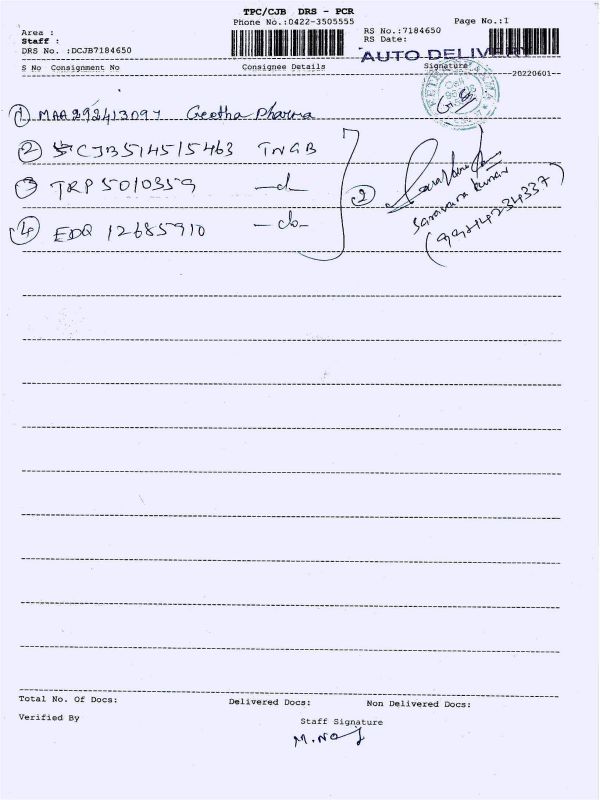 TPC/CJB DRS - PCR
Phone No.:0422-3505555
Page No.:1
Area :
Staff :
DRS No. :DCJB7184650
RS No.:7184650
RS Date:
AUTO DELIVERY
S No Consignment No Consignee Details Signature
20220601
1 MAA292413097 Geetha Pharma
2 CJB514515463 TNGB
3 TRP5010359 -do-
4 EDQ 12685910 -do-
2
Saravana Kumar
(9942234337)
Total No. Of Docs: Delivered Docs: Non Delivered Docs:
Verified By
Staff Signature